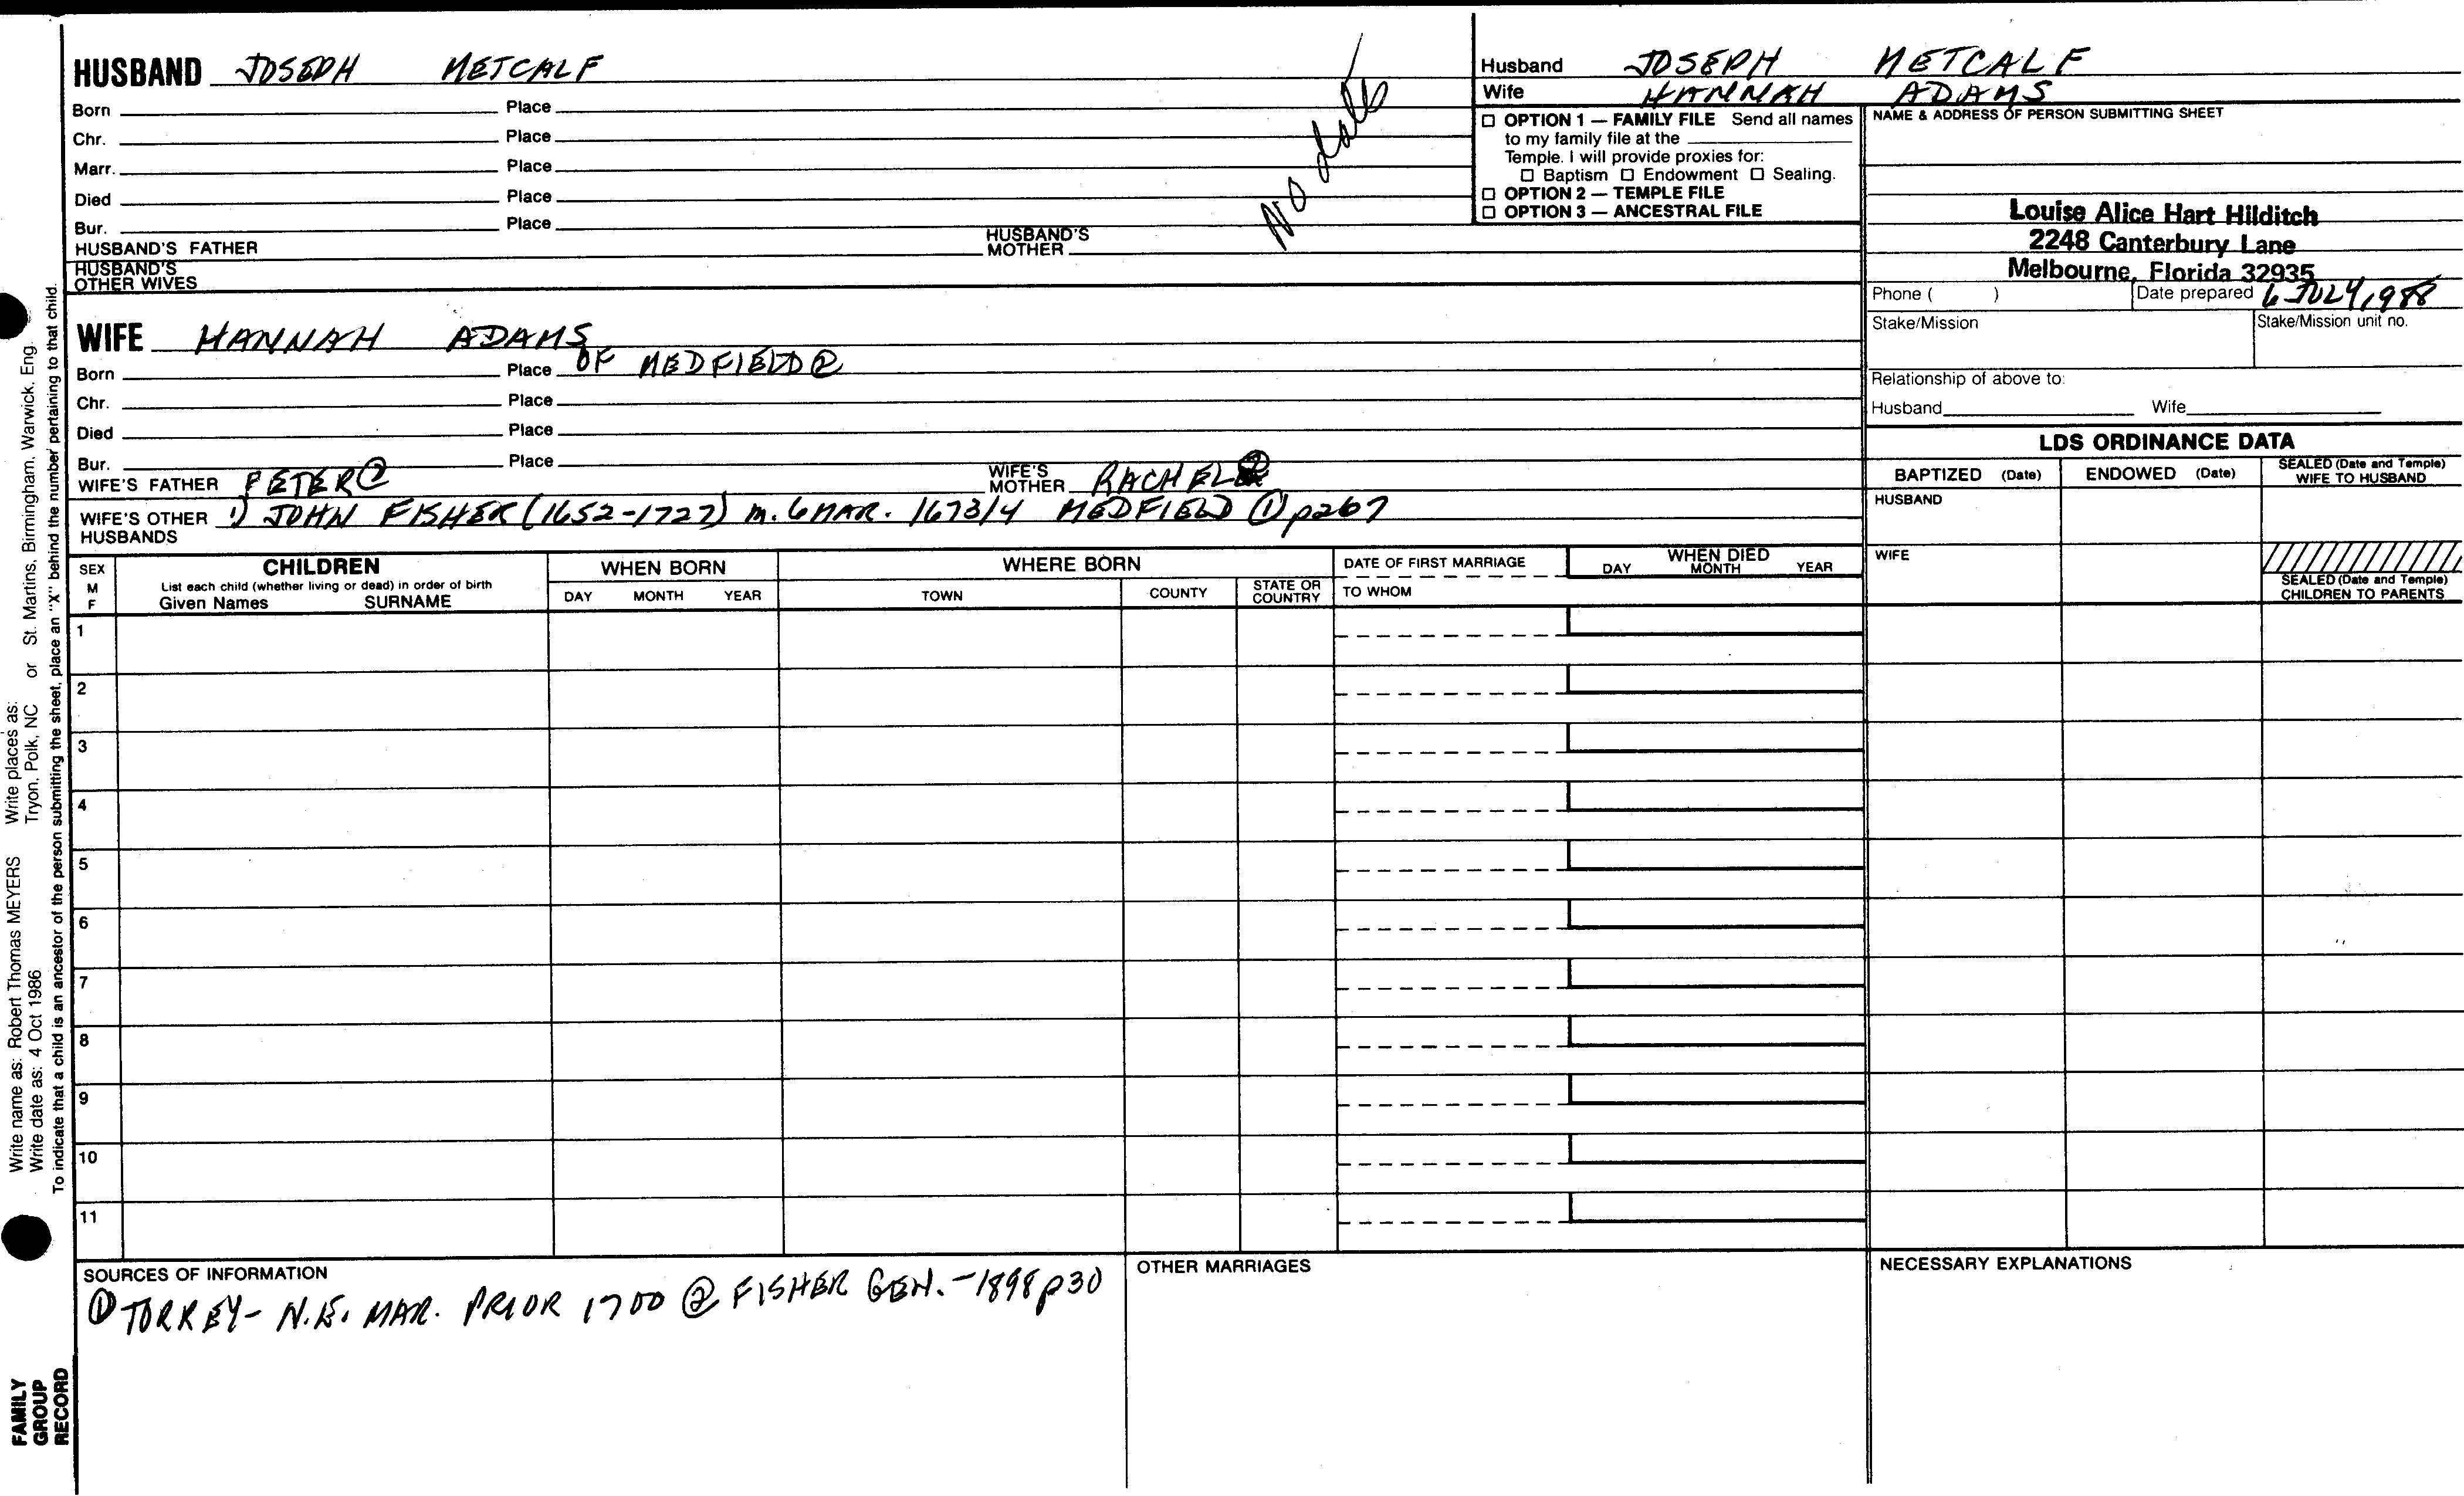 HUSBAND JOSEPH METCALF
Born Place
Chr. Place
Marr. Place
Died Place
Bur. Place
HUSBAND'S FATHER HUSBAND'S MOTHER
HUSBAND'S OTHER WIVES
No date
Husband JOSEPH METCALF
Wife HANNAH ADAMS
☐ OPTION 1 — FAMILY FILE Send all names
to my family file at the
Temple. I will provide proxies for:
☐ Baptism ☐ Endowment ☐ Sealing.
☐ OPTION 2 — TEMPLE FILE
☐ OPTION 3 — ANCESTRAL FILE
NAME & ADDRESS OF PERSON SUBMITTING SHEET
Louise Alice Hart Hilditch
2248 Canterbury Lane
Melbourne, Florida 32935
Phone ( ) Date prepared 6 JULY 1988
Stake/Mission Stake/Mission unit no.
Relationship of above to:
Husband Wife
WIFE HANNAH ADAMS
Born Place OF MEDFIELD ②
Chr. Place
Died Place
Bur. Place
WIFE'S FATHER PETER ② WIFE'S MOTHER RACHEL ②
WIFE'S OTHER HUSBANDS 1) JOHN FISHER (1652-1727) m. 6 MAR. 1673/4 MEDFIELD ① p267
LDS ORDINANCE DATA
BAPTIZED (Date) ENDOWED (Date) SEALED (Date and Temple) WIFE TO HUSBAND
HUSBAND
WIFE
SEALED (Date and Temple) CHILDREN TO PARENTS
SEX M F
CHILDREN
List each child (whether living or dead) in order of birth
Given Names SURNAME
WHEN BORN
DAY MONTH YEAR
WHERE BORN
TOWN COUNTY STATE OR COUNTRY
DATE OF FIRST MARRIAGE
TO WHOM
WHEN DIED
DAY MONTH YEAR
1
2
3
4
5
6
7
8
9
10
11
SOURCES OF INFORMATION
① TORREY- N.E. MAR. PRIOR 1700 ② FISHER GEN. -1898 p30
OTHER MARRIAGES
NECESSARY EXPLANATIONS
Write name as: Robert Thomas MEYERS Write places as:
Write date as: 4 Oct 1986 Tryon, Polk, NC or St. Martins, Birmingham, Warwick, Eng.
To indicate that a child is an ancestor of the person submitting the sheet, place an "X" behind the number pertaining to that child.
FAMILY
GROUP
RECORD